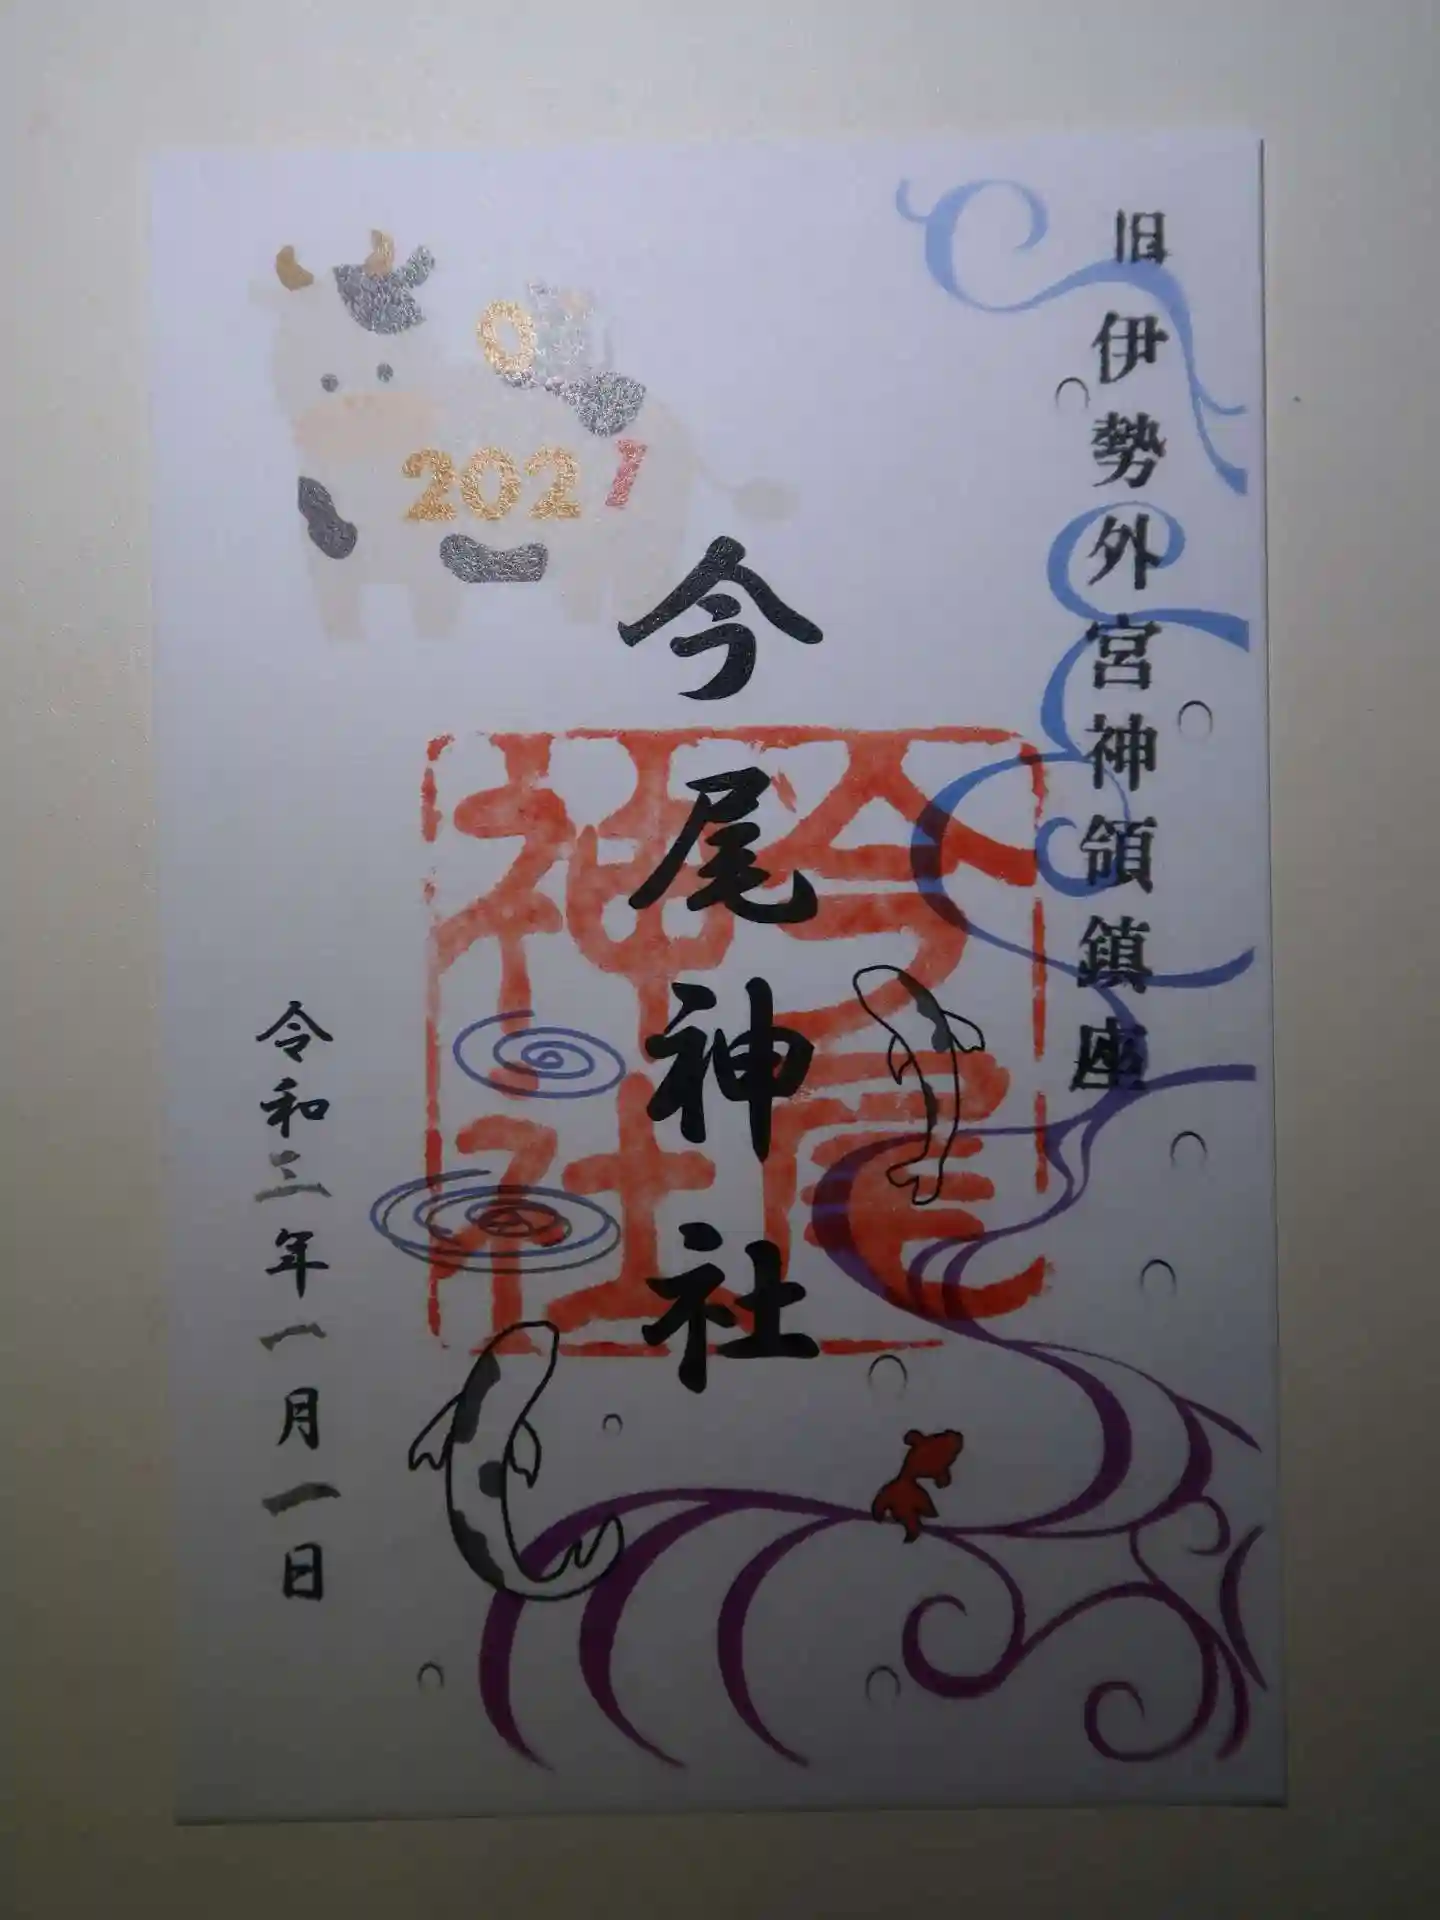 旧伊勢外宮神領鎮座
今尾神社
今尾
神社
令和三年一月一日
0
2021